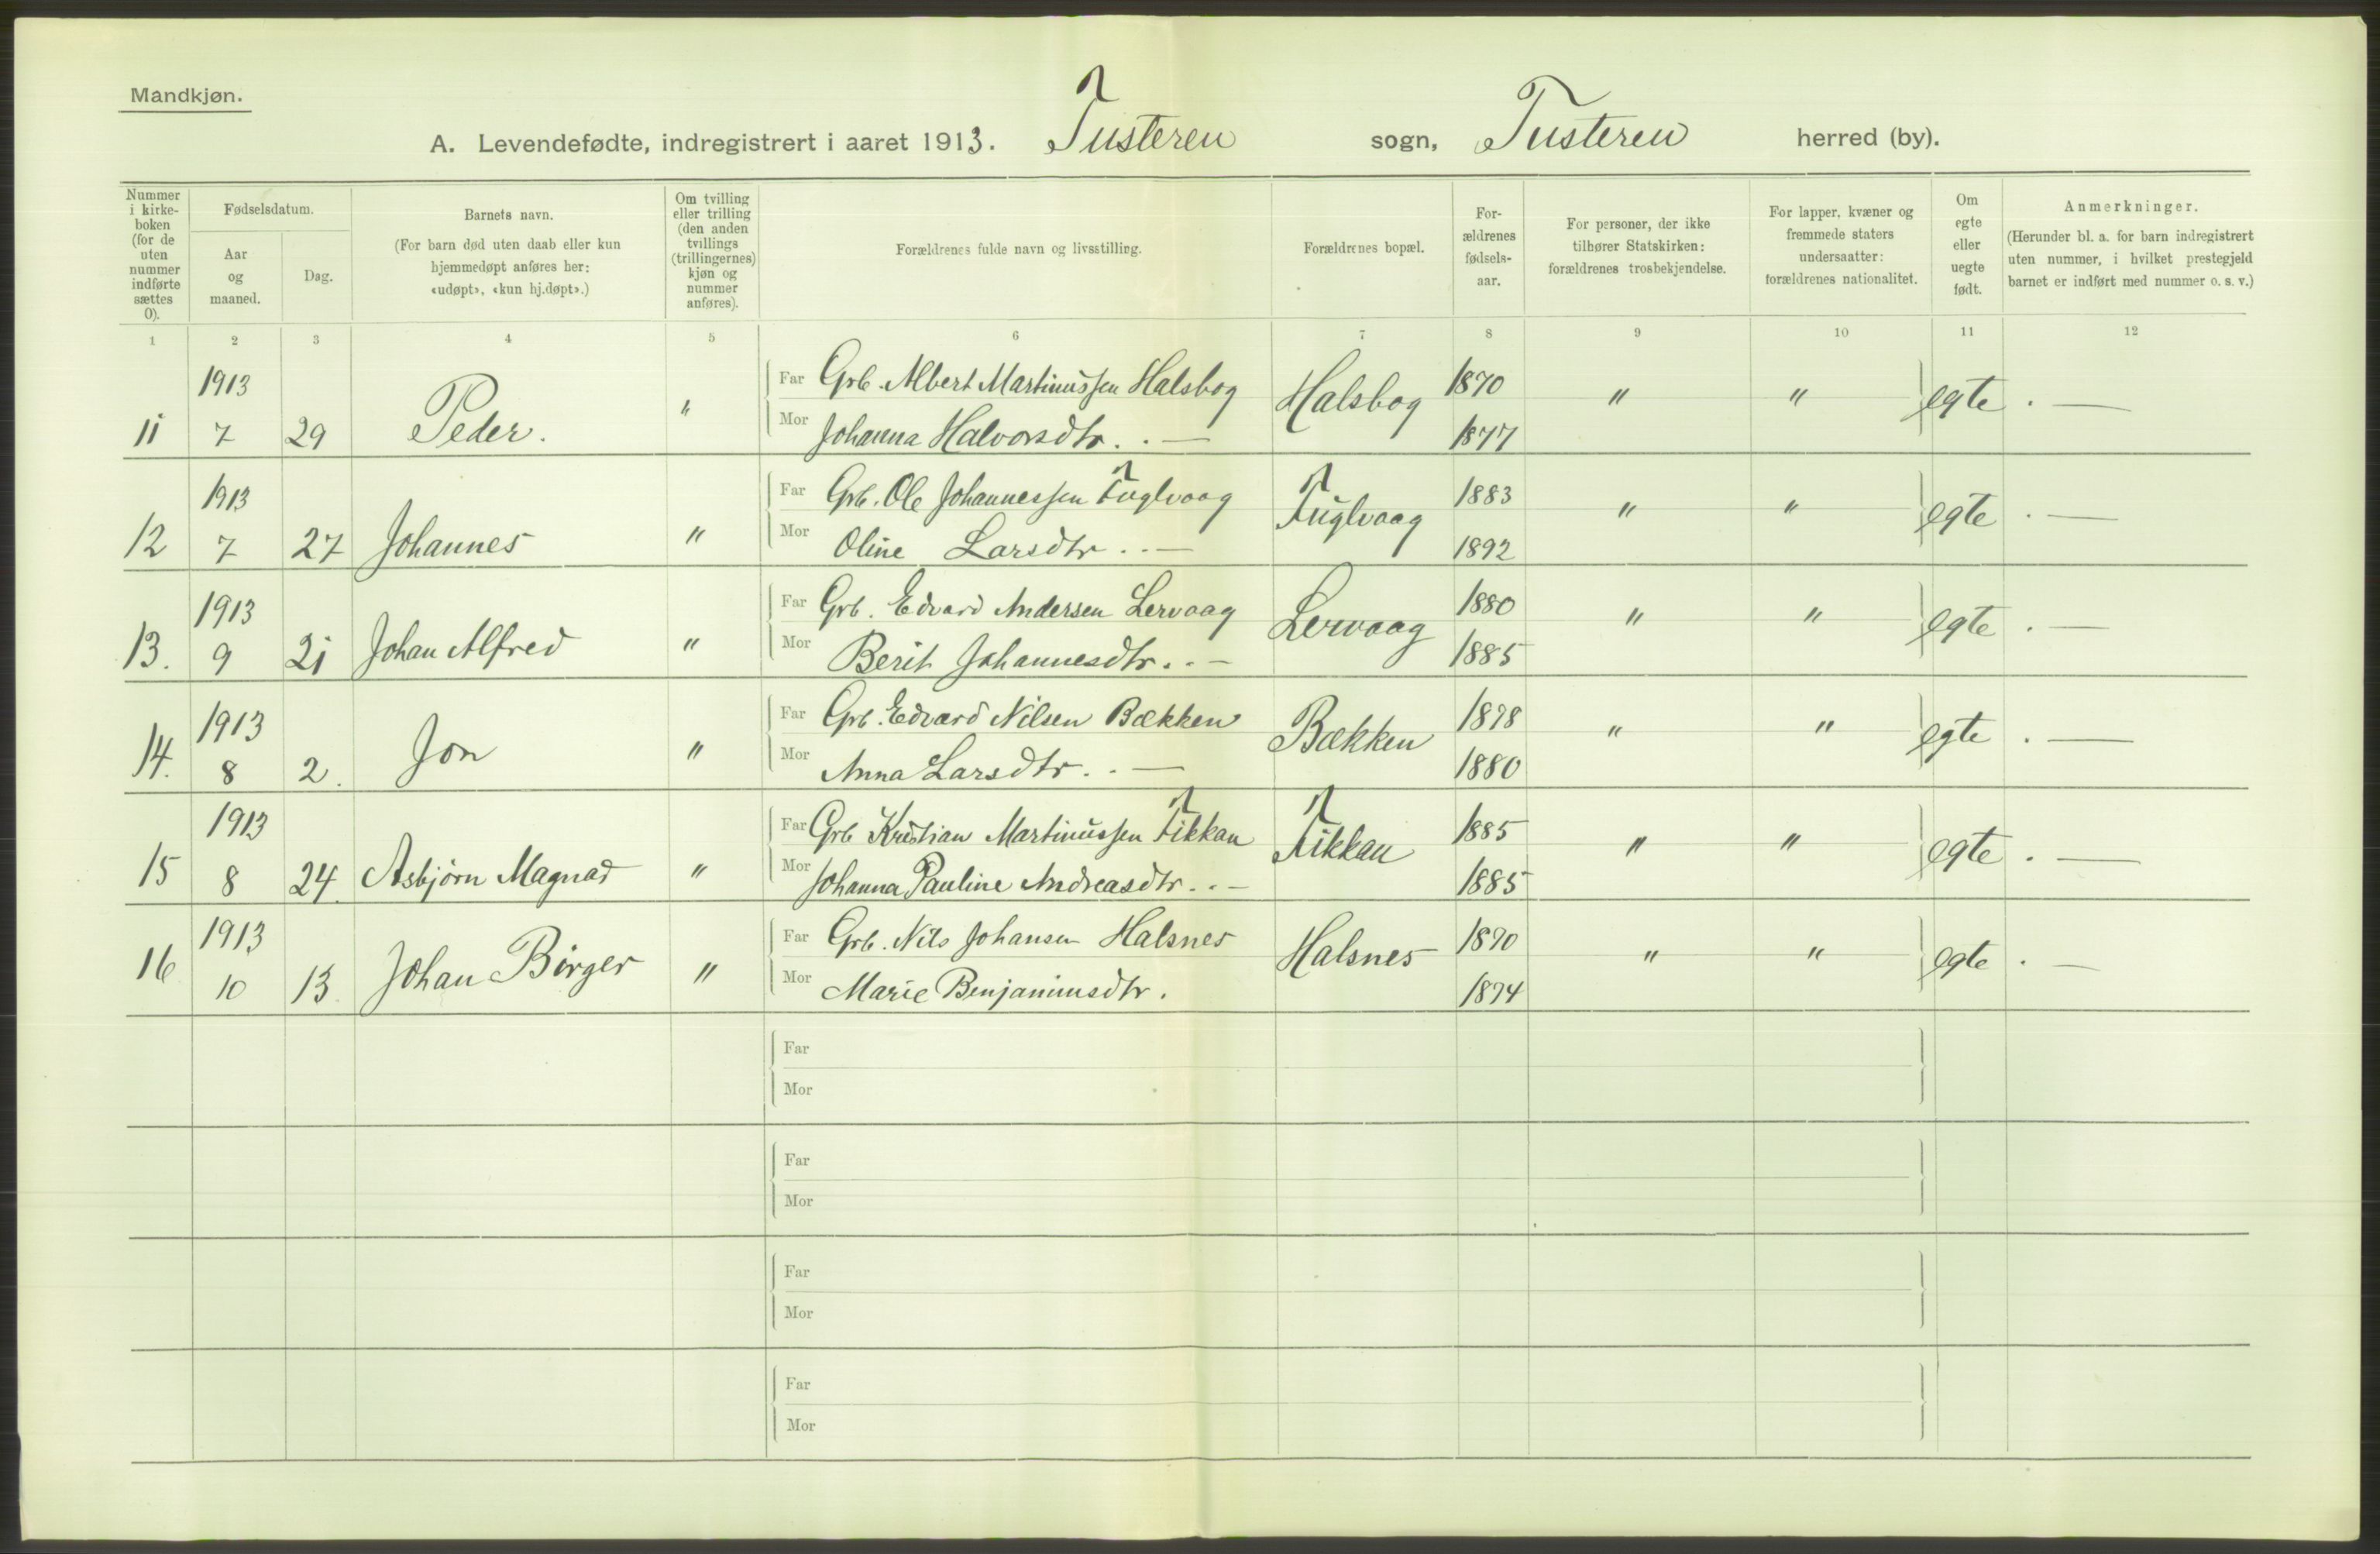 Mandkjøn.
A. Levendefødte, indregistrert i aaret 1913. Tusteren sogn, Tusteren herred (by).
Nummer i kirke-boken (for de uten nummer indførte sættes 0).
Fødselsdatum.
Aar og maaned.
Dag.
Barnets navn.
(For barn død uten daab eller kun hjemmedøpt anføres her: «udøpt», «kun hj.døpt».)
Om tvilling eller trilling (den anden tvillings (trillingernes) kjøn og nummer anføres).
Forældrenes fulde navn og livsstilling.
Forældrenes bopæl.
For-ældrenes fødsels-aar.
For personer, der ikke tilhører Statskirken: forældrenes trosbekjendelse.
For lapper, kvæner og fremmede staters undersaatter: forældrenes nationalitet.
Om egte eller uegte født.
Anmerkninger.
(Herunder bl. a. for barn indregistrert uten nummer, i hvilket prestegjeld barnet er indført med nummer o. s. v.)
1 2 3 4 5 6 7 8 9 10 11 12
1913 Far Grb. Albert Martinussen Halsbog Halsbog 1870 " " egte . —
11 7 29 Peder. " Mor Johanna Halvorsdtr. . — 1877
1913 Far Grb. Ole Johannessen Fuglvaag Fuglvaag 1883 " " egte . —
12 7 27 Johannes " Mor Oline Larsdtr . . — 1892
1913 Far Grb. Edvard Andersen Lervaag Lervaag 1880 " " egte . —
13. 9 21 Johan Alfred " Mor Berit Johannesdtr. . — 1885
1913 Far Grb. Edvard Nilsen Bækken Bækken 1878 " " egte . —
14. 8 2. Jon " Mor Anna Larsdtr. . — 1880
1913 Far Grb Kristian Martinussen Fikkan Fikkan 1885 " " egte . —
15 8 24. Asbjørn Magnar " Mor Johanna Pauline Andreasdtr. . — 1885
1913 Far Grb. Nils Johansen Halsnes Halsnes 1890 " " egte . —
16 10 13 Johan Birger " Mor Marie Benjaminsdtr. 1894
Far
Mor
Far
Mor
Far
Mor
Far
Mor